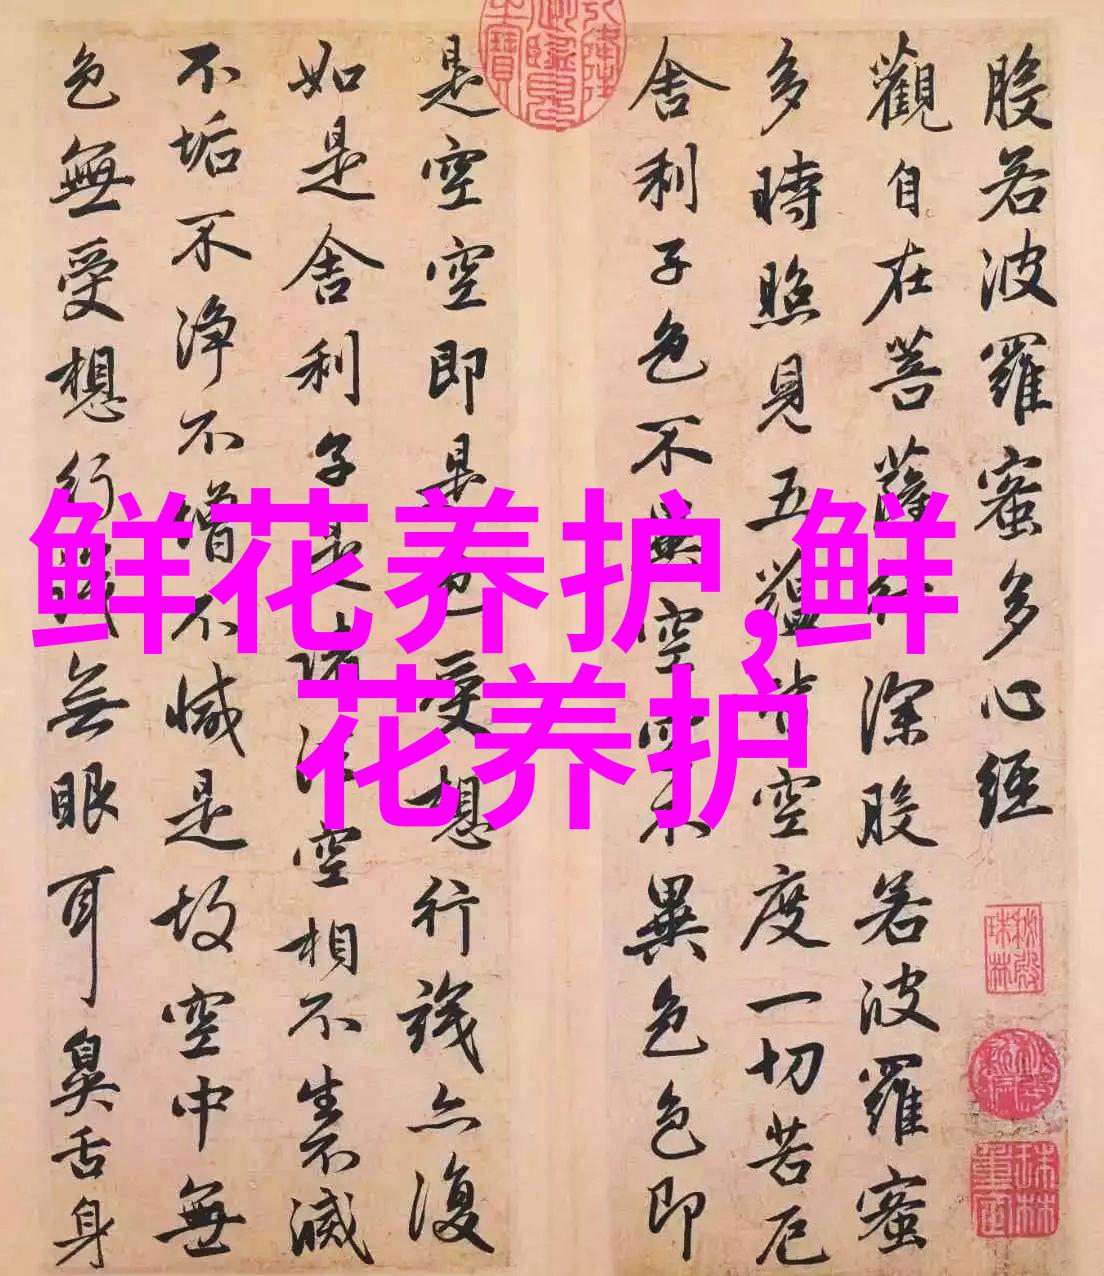 鲜花养护,鲜
花养护
般若波羅蜜多心經
觀自在菩薩行深般若波羅蜜
多時照見五蘊皆空度一切苦厄
舍利子色不異空空不異色色即
是空空即是色受想行識亦復
如是舍利子是諸法空相不生不滅
不垢不淨不增不減是故空中無
色無受想行識無眼耳鼻舌身